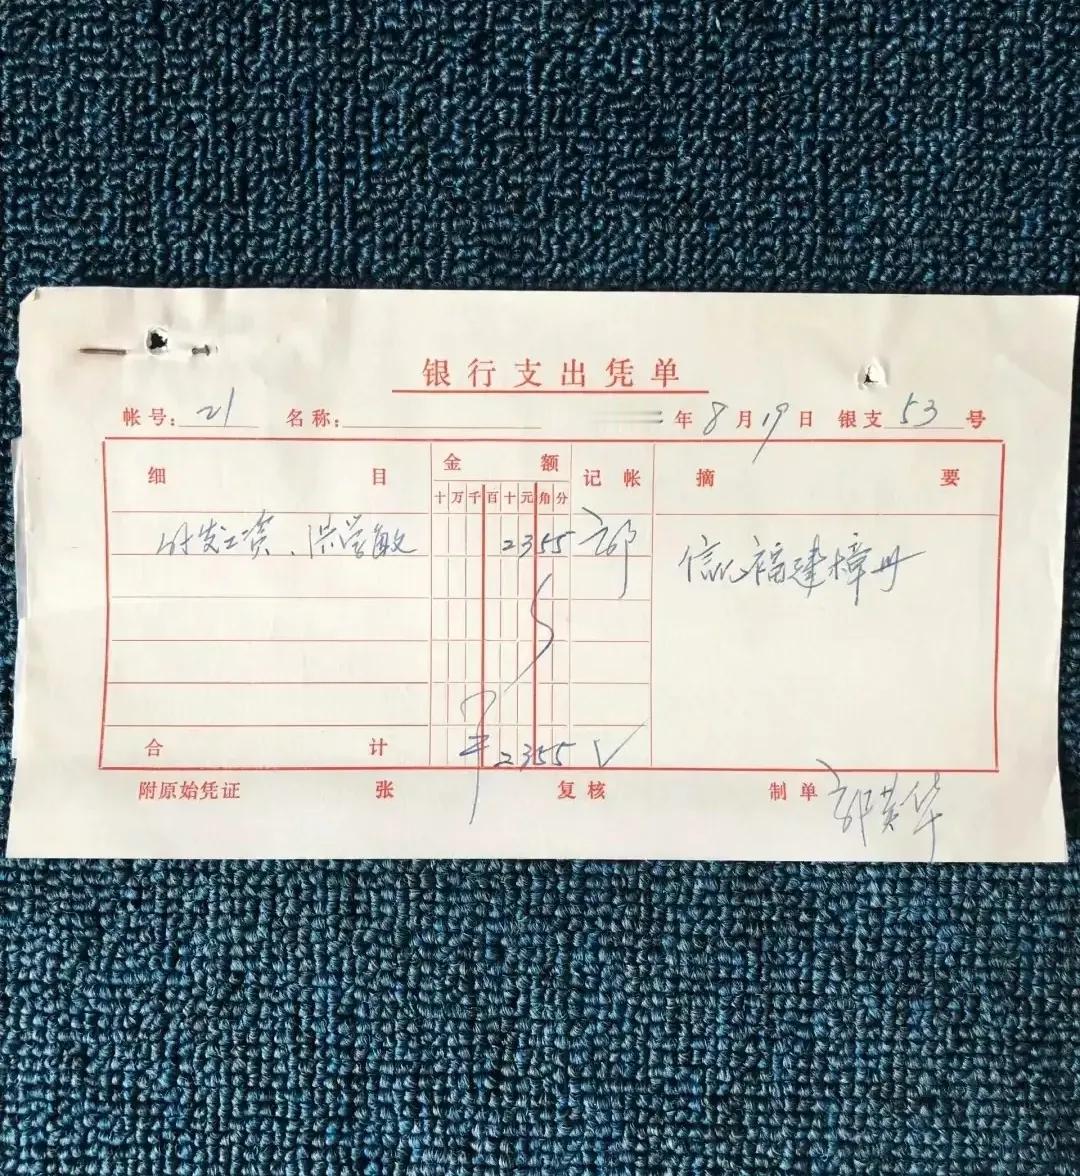 银行支出凭单
帐号: 21 名称: 年 8 月 19 日 银支 53 号
细目 金额 记帐 摘要
十 万 千 百 十 元 角 分
付发工资、洪学敏 2355 郭
信汇福建樟
合计 ¥2355
附原始凭证 张 复核 制单 郭英华